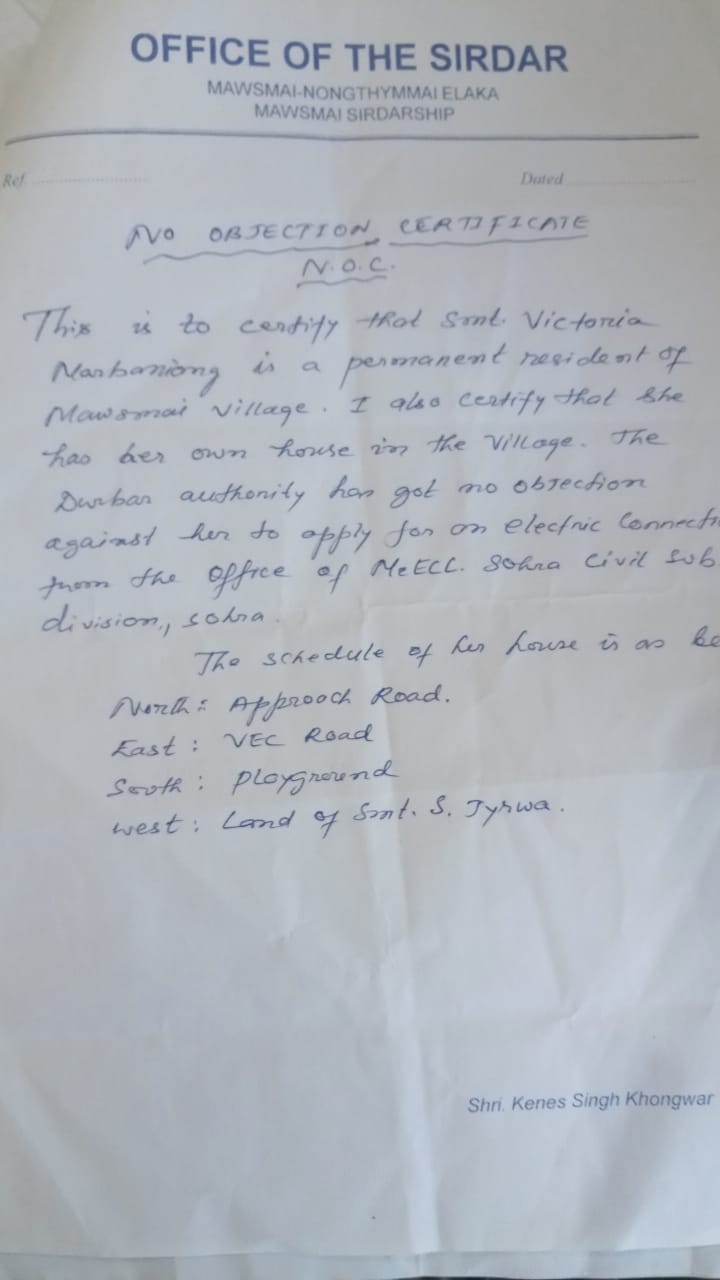 OFFICE OF THE SIRDAR
MAWSMAI-NONGTHYMMAI ELAKA
MAWSMAI SIRDARSHIP
Ref. Dated
NO OBJECTION CERTIFICATE
N.O.C.
This is to certify that Smt. Victoria
Narbaniong is a permanent resident of
Mawsmai Village. I also certify that she
has her own house in the Village. The
Durbar authority has got no objection
against her to apply for an electric Connecti
from the office of MeECL. Sohra Civil Sub
division,, Sohra.
The schedule of her house is as be
North: Approach Road.
East: VEC Road
South: Playground
West: Land of Smt. S. Tyrwa.
Shri. Kenes Singh Khongwar